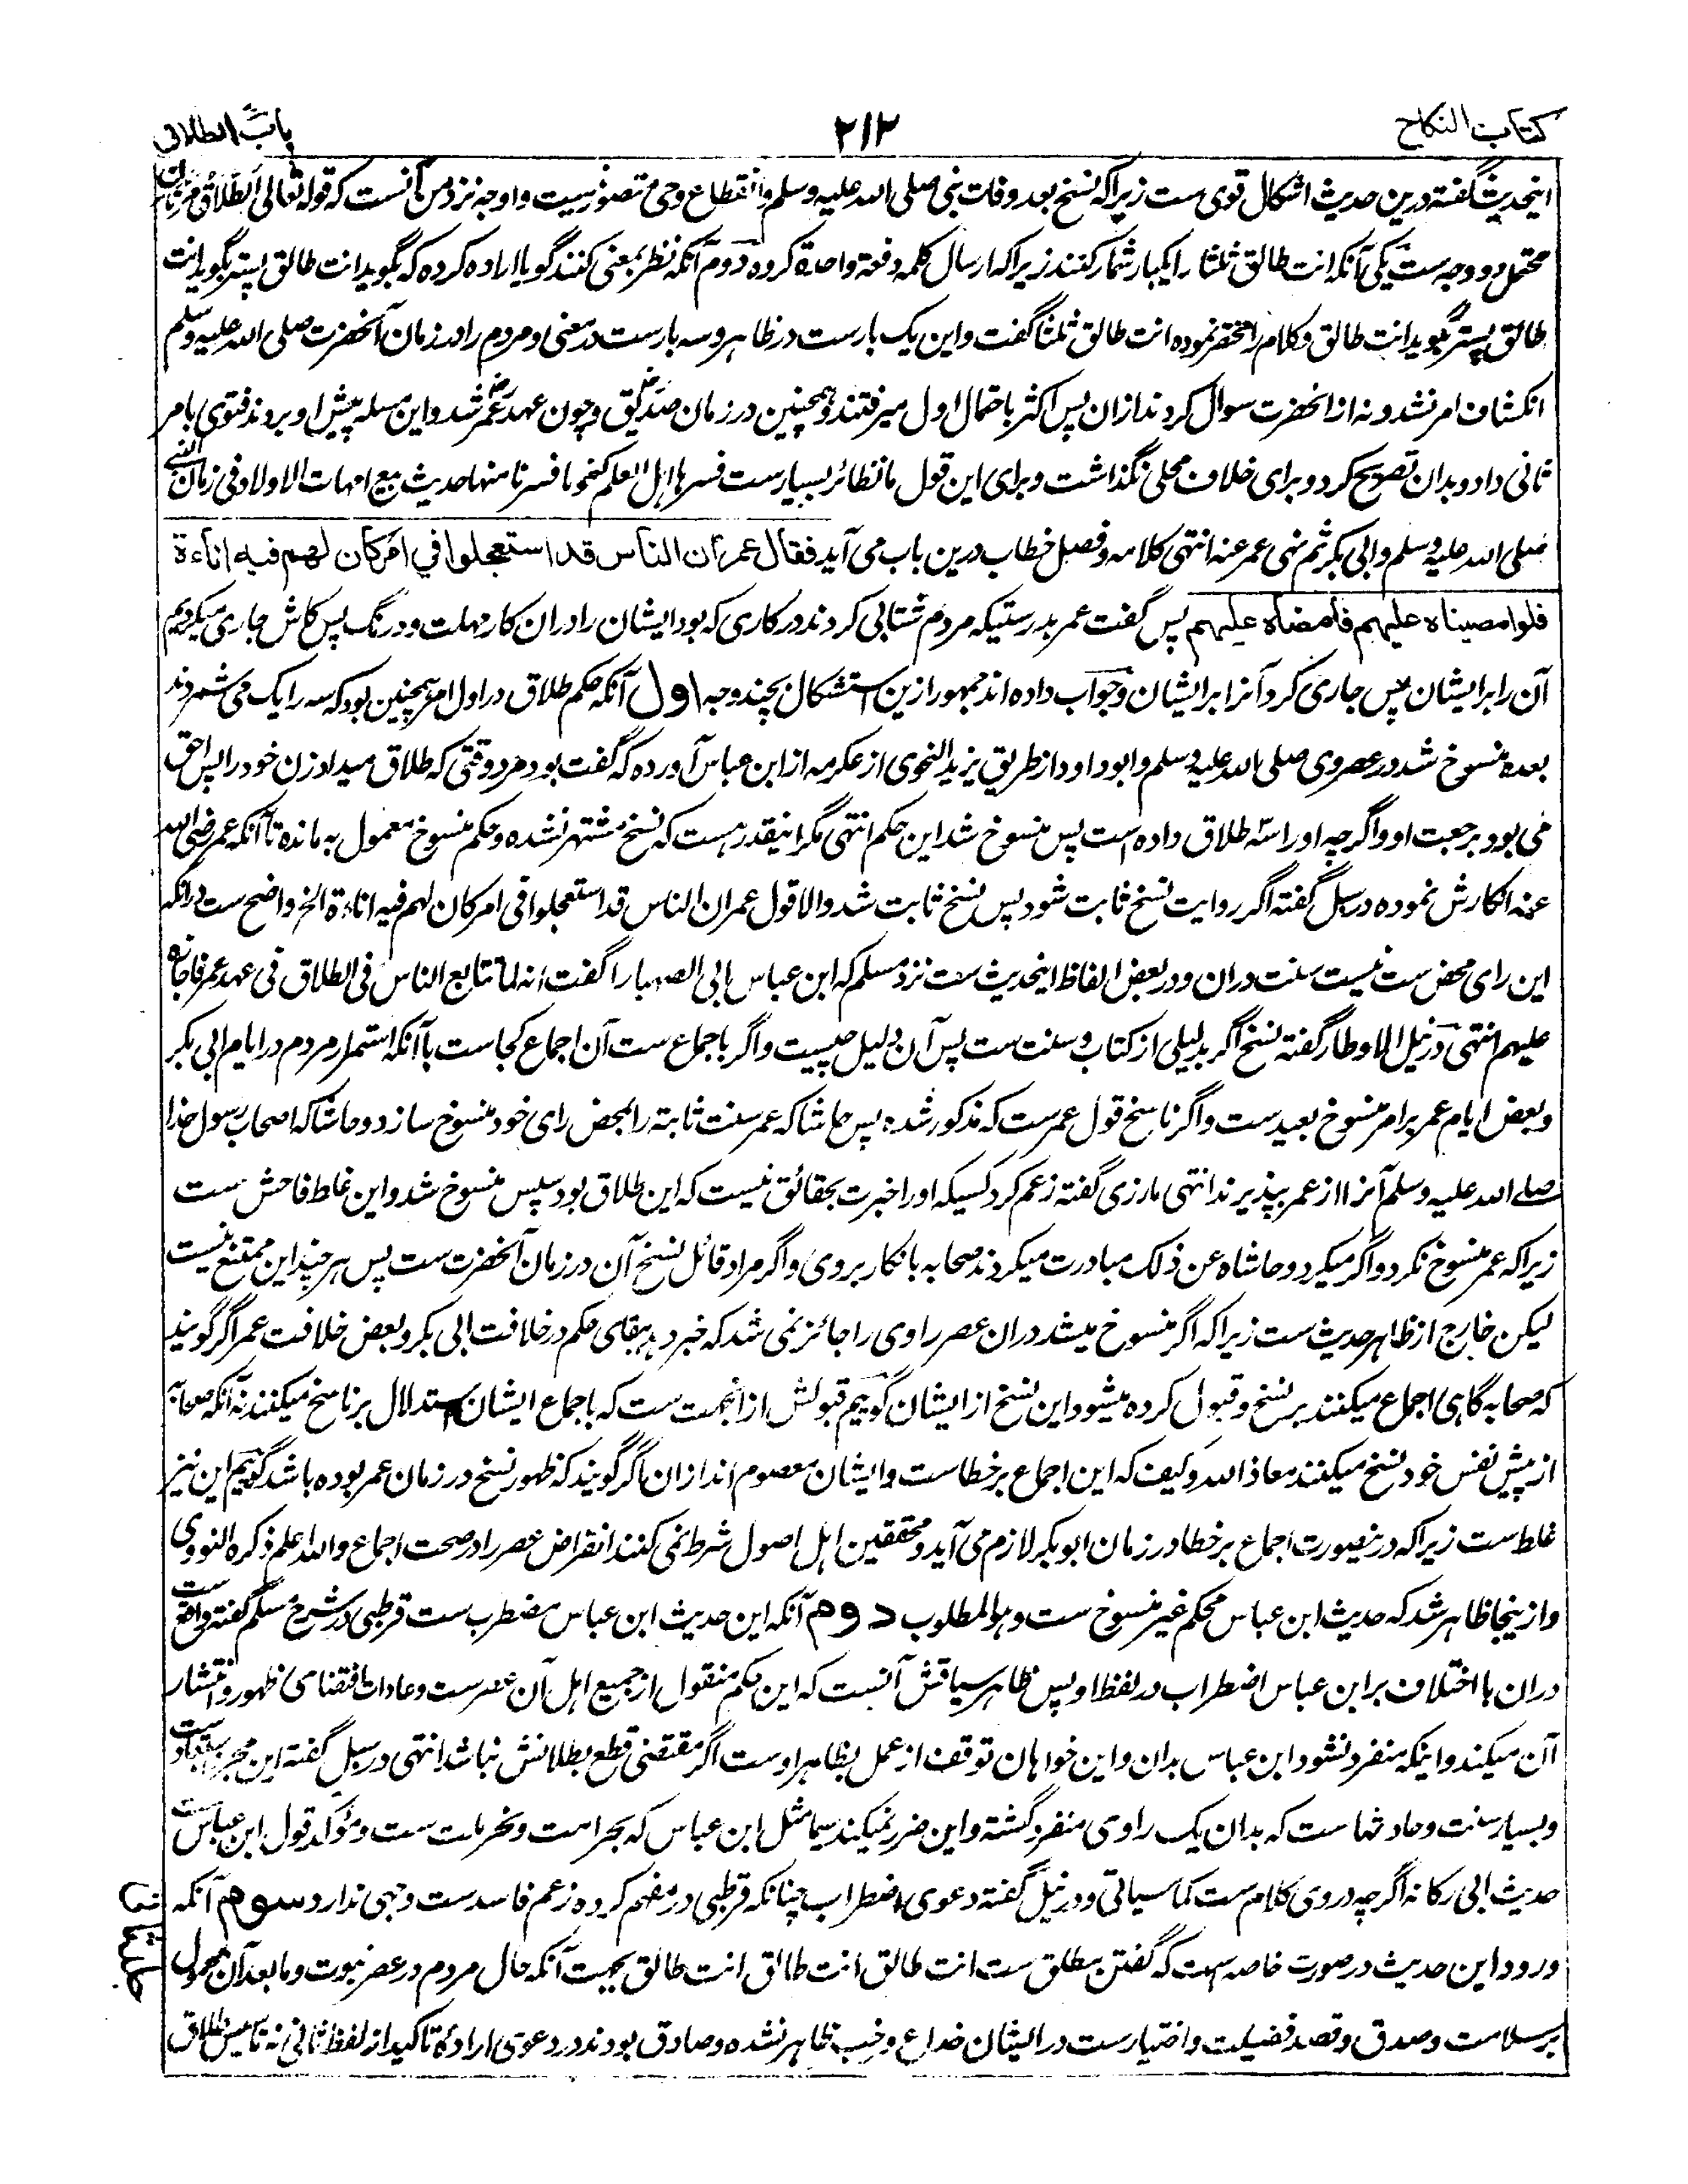 کتاب النکاح
۲۱۲
باب الطلاق
اینحدیث گفته درین حدیث اشکال قوی ست زیراکه نسخ بعد وفات نبی صلی الله علیه وسلم وانقطاع وحی متصور نیست و اوجه نزد من آنست که قوله تعالی الطلاق مرتان
محتمل دو وجه ست یکی آنکه انت طالق ثلثا را یکبار شمار کنند زیراکه ارسال کلمه دفعة واحدة کرده دوم آنکه نظر بمعنی کنند گویا اراده کرده که بگوید انت طالق پستر بگوید انت
طالق پستر بگوید انت طالق وکلام را مختصر نموده انت طالق ثلثا گفت واین یک بارست در ظاهر وسه بارست در معنی ومردم را در زمان آنحضرت صلی الله علیه وسلم
انکشاف امر نشد ونه از آنحضرت سوال کردند ازان پس اکثر باحتمال اول میرفتند وهمچنین در زمان صدیق رض وچون عهد عمر رض شد واین مسله پیش او بردند فتوی بامر
ثانی داد وبدان تصریح کرد وبرای خلاف محلی نگذاشت وبرای این قول ما نظائر بسیارست فسرها اهل العلم کنحو ما فسرنا منها حدیث بیع امهات الاولاد فی زمان النبی
صلی الله علیه وسلم وابی بکر ثم نهی عمر عنه انتهی کلامه وفصل خطاب درین باب می آید فقال عمر ان الناس قد استعجلوا في امر كان لهم فيه اناءة
فلو امضیناه علیهم فامضاه علیهم پس گفت عمر بدرستیکه مردم شتابی کردند در کاری که بود ایشان را در ان کار مهلت ودرنگ پس کاش جاری میکردیم
آن را بر ایشان پس جاری کرد آنرا بر ایشان وجواب داده اند جمهور ازین استشکال بچند وجه اول آنکه حکم طلاق در اول امر همچنین بود که سه را یک می شمردند
بعده منسوخ شد در عصر وی صلی الله علیه وسلم وابو داود از طریق یزید النحوی از عکرمه از ابن عباس آورده که گفت بود مرد وقتی که طلاق میداد زن خود را پس احق
می بود برجعت او واگرچه او را سه طلاق داده است پس منسوخ شد این حکم انتهی مگر اینقدر هست که نسخ مشتهر نشده وحکم منسوخ معمول به مانده تا آنکه عمر رضی الله
عنه انکارش نموده در سبل گفته اگر روایت نسخ ثابت شود پس نسخ ثابت شد والا قول عمر ان الناس قد استعجلوا فی امر کان لهم فیه اناءة الخ واضح ست درانکه
این رای محض ست نیست سنت دران ودر بعض الفاظ اینحدیث ست نزد مسلم که ابن عباس ابی الصهبا را گفت انه لما تتابع الناس فی الطلاق فی عهد عمر فاجازه
علیهم انتهی در نیل الاوطار گفته نسخ اگر بدلیلی از کتاب و سنت ست پس آن دلیل چیست واگر باجماع ست آن اجماع کجاست با آنکه استمرار مردم در ایام ابی بکر
وبعض ایام عمر بر امر منسوخ بعیدست واگر ناسخ قول عمرست که مذکور شده پس حاشا که عمر سنت ثابته را بمحض رای خود منسوخ سازد وحاشا که اصحاب رسول خدا
صلی الله علیه وسلم آنرا از عمر بپذیرند انتهی مازری گفته زعم کرد کسیکه او را خبرت بحقائق نیست که این طلاق بود سپس منسوخ شد واین غلط فاحش ست
زیراکه عمر منسوخ نکرد واگر میکرد وحاشاه عن ذلک مبادرت میکردند صحابه بانکار بر وی واگر مراد قائل نسخ آن در زمان آنحضرت ست پس هر چند این ممتنع نیست
لیکن خارج از ظاهر حدیث ست زیراکه اگر منسوخ میشد دران عصر راوی را جائز نمی شد که خبر دهد ببقای حکم در خلافت ابی بکر وبعض خلافت عمر اگر گویند
که صحابه گاهی اجماع میکنند بر نسخ وقبول کرده میشود این نسخ از ایشان گوییم قبولش از انجهت ست که باجماع ایشان استدلال بر ناسخ میکنند نه آنکه صحابه
از پیش نفس خود نسخ میکنند معاذ الله وکیف که این اجماع بر خطاست وایشان معصوم اند ازان واگر گویند که ظهور نسخ در زمان عمر بوده باشد گوییم این نیز
غلط ست زیراکه درینصورت اجماع بر خطا در زمان ابو بکر لازم می آید ومحققین اهل اصول شرط نمی کنند انقراض عصر را در صحت اجماع والله اعلم ذکره النووی
وازینجا ظاهر شد که حدیث ابن عباس محکم غیر منسوخ ست وهو المطلوب دوم آنکه این حدیث ابن عباس مضطرب ست قرطبی در شرح مسلم گفته واقع ست
دران با اختلاف بر ابن عباس اضطراب در لفظ او پس ظاهر سیاقش آنست که این حکم منقول از جمیع اهل آن عصرست وعادات اقتضای ظهور وانتشار
آن میکند واینکه منفرد نشود ابن عباس بدان واین خواهان توقف از عمل بظاهر اوست اگر مقتضی قطع ببطلانش نباشد انتهی در سبل گفته این مجرد استبعادست
وبسیار سنت وحادثهاست که بدان یک راوی منفرد گشته واین ضرر نمیکند سیما مثل ابن عباس که بحر امت وحبر ملت ست ومؤکد قول ابن عباس ست
حدیث ابی رکانه اگرچه در وی کلام ست کما سیاتی ودر نیل گفته دعوی اضطراب چنانکه قرطبی در مفهم کرده زعم فاسدست وجهی ندارد سوم آنکه
ورود این حدیث در صورت خاصه است که گفتن مطلق ست انت طالق انت طالق انت طالق بجهت آنکه حال مردم در عصر نبوت وما بعد آن محمول
بر سلامت وصدق وقصد فضیلت واختیارست در ایشان خداع وخب ظاهر نشده وصادق بودند در دعوی اراده تاکید از لفظ ثانی نه تاسیس طلاق